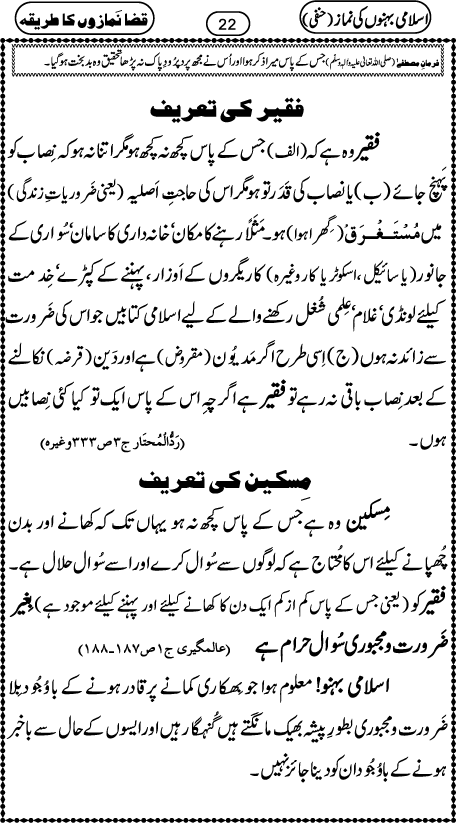 اسلامی بہنوں کی نماز (حنفی)
22
قضا نمازوں کا طریقہ
فرمانِ مصطفٰے: (صلی اللہ تعالیٰ علیہ والہٖ وسلم) جس کے پاس میرا ذکر ہوا اور اُس نے مجھ پر دُرُودِ پاک نہ پڑھا تحقیق وہ بد بخت ہو گیا۔
فقیر کی تعریف
فقیر وہ ہے کہ (الف) جس کے پاس کچھ نہ کچھ ہو مگر اتنا نہ ہو کہ نِصاب کو
پَہنچ جائے (ب) یا نصاب کی قَدَر تو ہو مگر اس کی حاجتِ اَصلیہ (یعنی ضَروریاتِ زندگی)
میں مُسْتَغْرَق (گِھرا ہوا) ہو۔ مَثَلًا رہنے کا مکان' خانہ داری کا سامان' سُواری کے
جانور (یا سائیکل، اسکوٹر یا کار وغیرہ) کاریگروں کے اَوزار، پہننے کے کپڑے' خِدمت
کیلئے لونڈی' غلام' عِلمی شُغل رکھنے والے کے لیے اسلامی کتابیں جو اس کی ضَرورت
سے زائد نہ ہوں (ج) اِسی طرح اگر مَدیُون (مقروض) ہے اور دَین (قرضہ) نکالنے
کے بعد نِصاب باقی نہ رہے تو فقیر ہے اگرچِہ اس کے پاس ایک تو کیا کئی نِصابیں
ہوں۔
(رَدُّالْمُحتَار ج۳ ص۳۳۳ وغیرہ)
مِسکین کی تعریف
مِسکین وہ ہے جس کے پاس کچھ نہ ہو یہاں تک کہ کھانے اور بدن
چُھپانے کیلئے اس کا مُحتاج ہے کہ لوگوں سے سُوال کرے اور اسے سُوال حلال ہے۔
فقیر کو (یعنی جس کے پاس کم از کم ایک دن کا کھانے کیلئے اور پہننے کیلئے موجود ہے) بِغیر
ضَرورت و مجبوری سُوال حرام ہے
(عالمگیری ج۱ ص۱۸۷۔۱۸۸)
اسلامی بہنو! معلوم ہوا جو بِھکاری کمانے پر قادِر ہونے کے باوُجُود بِلا
ضَرورت و مجبوری بطورِ پیشہ بھیک مانگتے ہیں گُنہگار ہیں اور ایسوں کے حال سے باخبر
ہونے کے باوُجُود ان کو دینا جائز نہیں۔